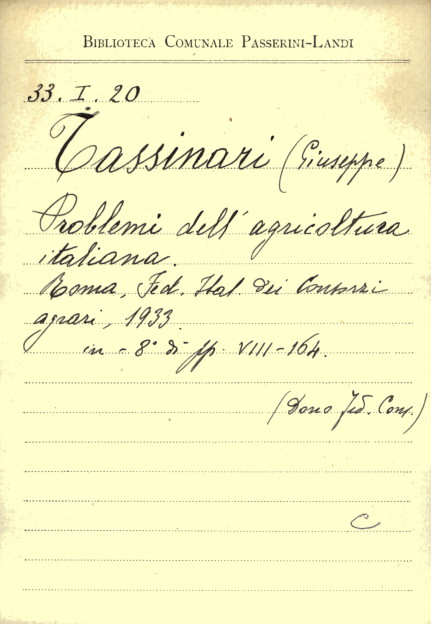 Biblioteca Comunale Passerini-Landi
33. I. 20
Tassinari (Giuseppe)
Problemi dell' agricoltura
italiana.
Roma, Fed. Ital. dei Consorzi
agrari, 1933.
in-8° di pp. VIII-164.
(Dono Fed. Cons.)
C